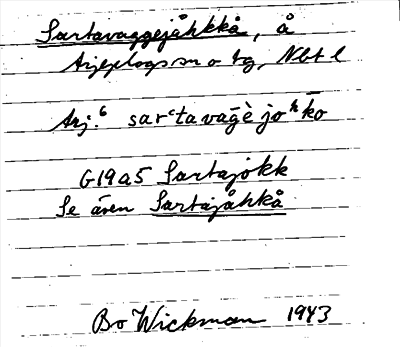 Sartavaggejåhkkå, å
Arjeplogs sn o tg, Nbt l
Arj.⁶ sarᶜtavāg̅è joʰk̅o
G19a5 Sartajokk
Se även Sartajåhkå
Bo Wickman 1943